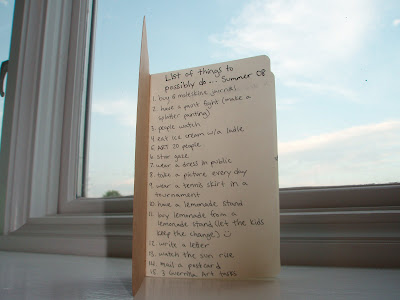 List of things to
possibly do... Summer 08
1. buy a moleskine journal
2. have a paint fight (make a
splatter painting)
3. people watch
4. eat ice cream w/a ladle
5. ART IS people.
6. star gaze
7. wear a dress in public
8. take a picture every day
9. wear a tennis skirt in a
tournament
10. have a lemonade stand
11. buy lemonade from a
lemonade stand (let the kids
keep the change) :)
12. write a letter
13. watch the sun rise
14. mail a postcard
15. 3 Guerrilla Art tasks